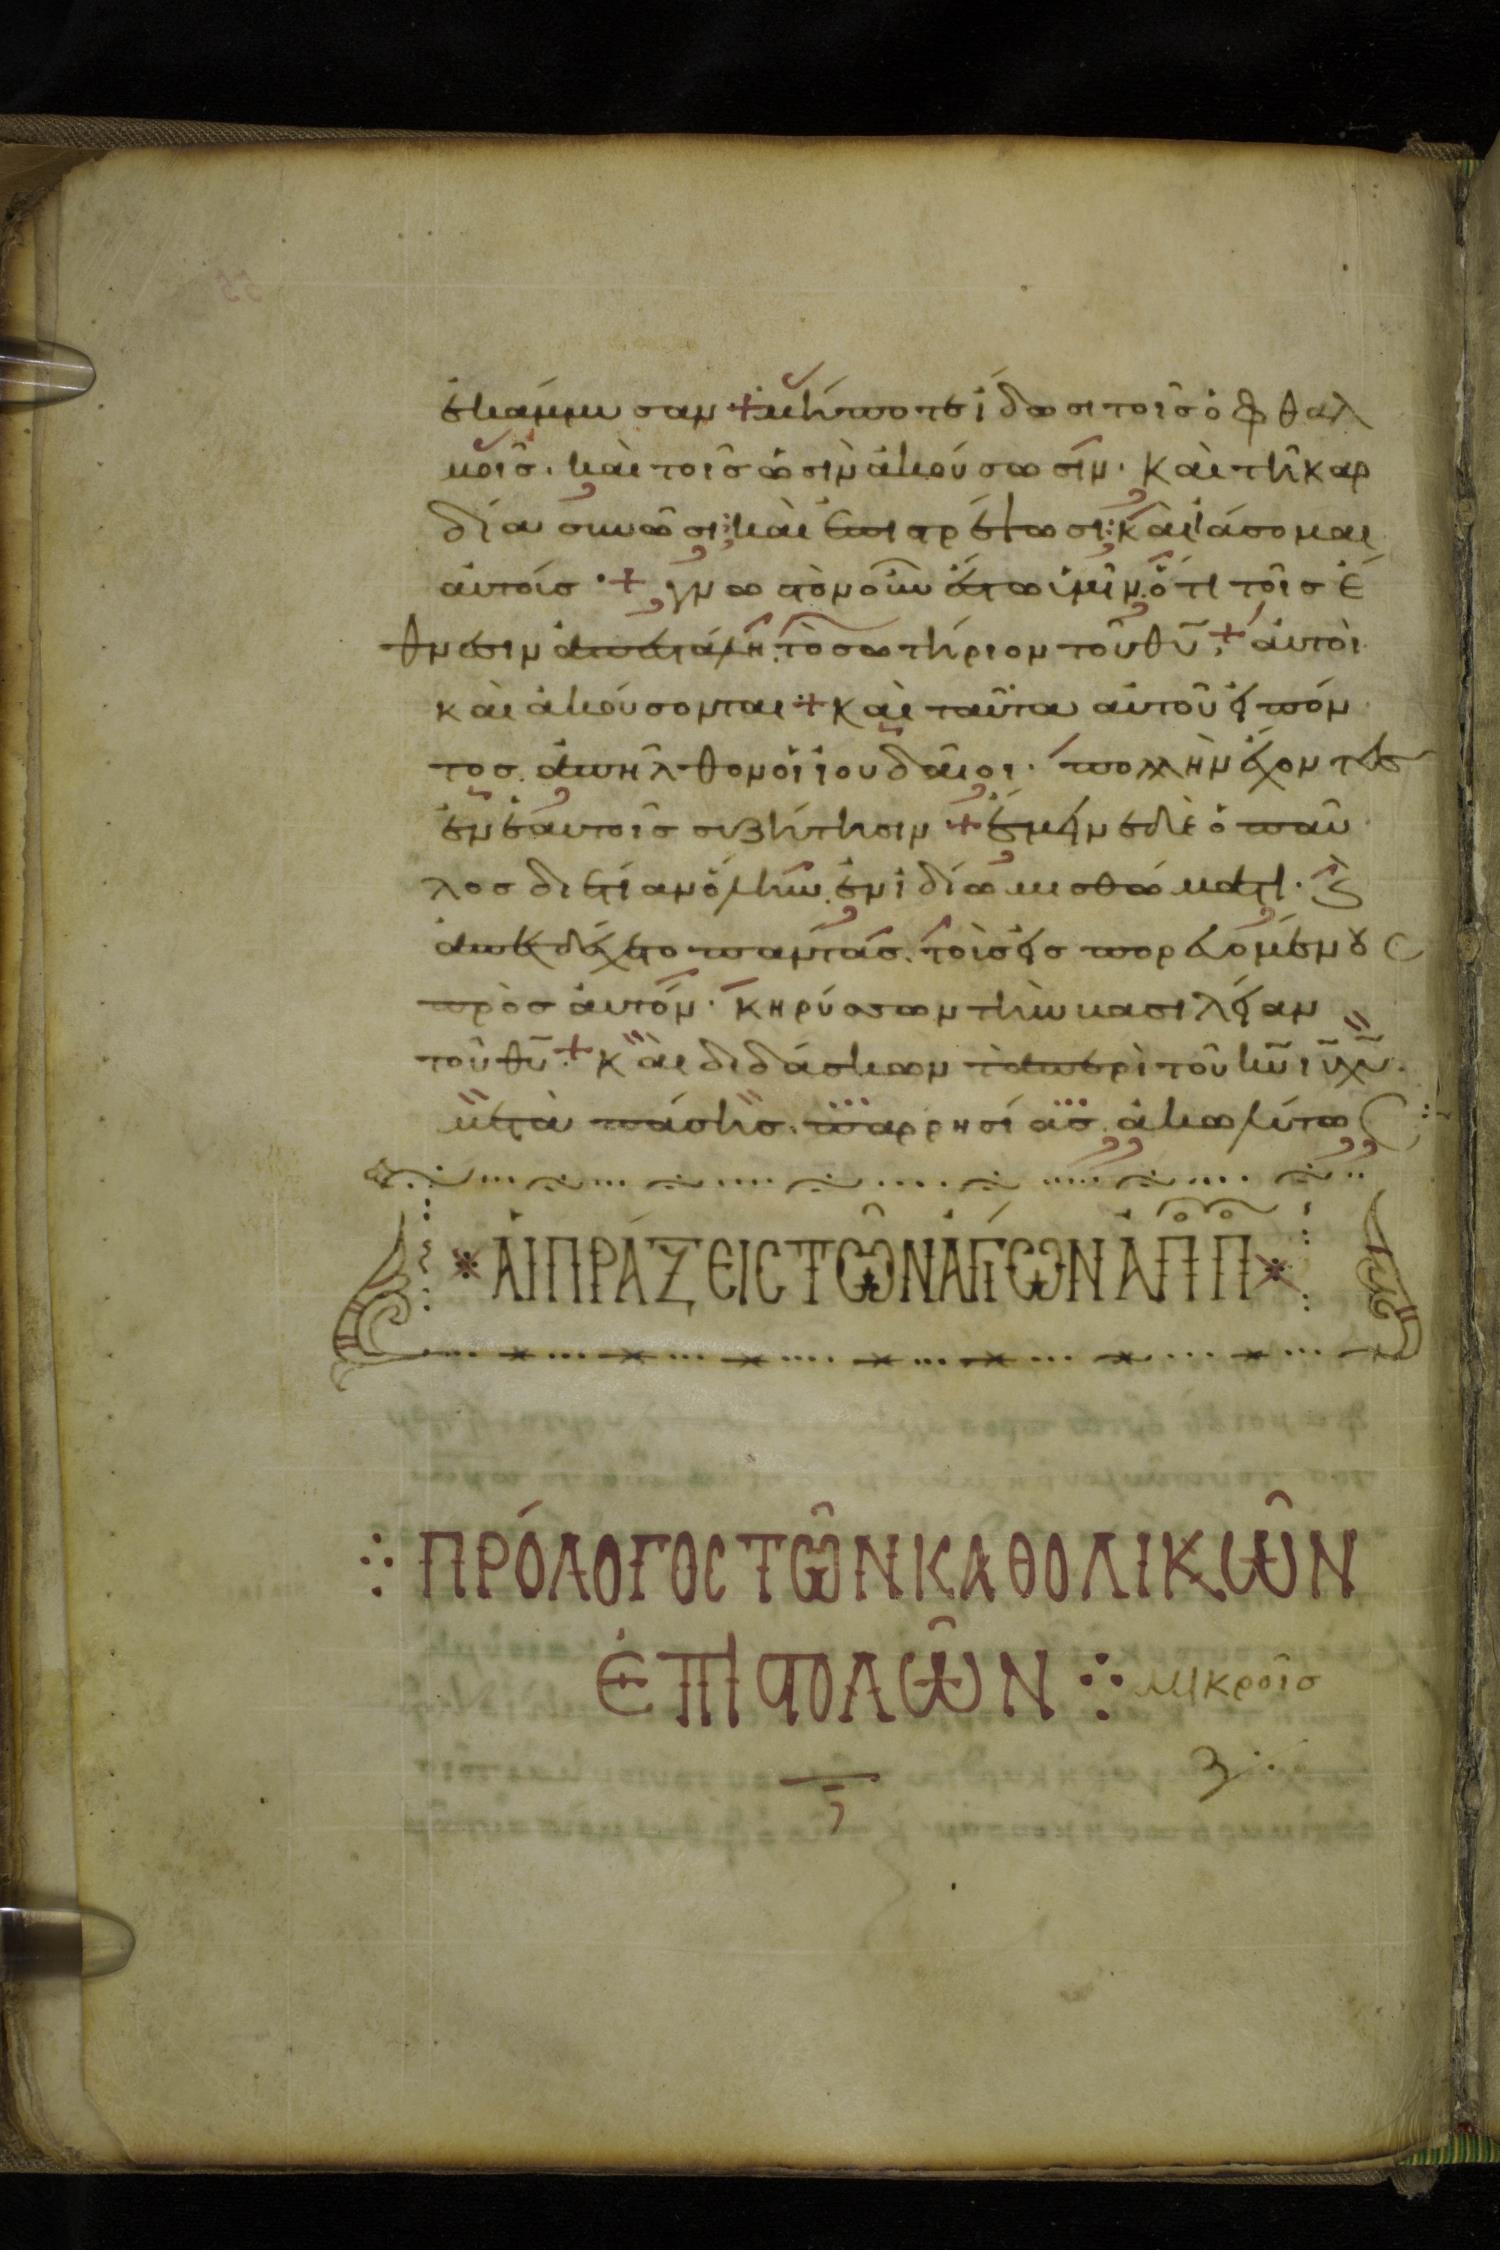 ἐκάμμυσαν + μήποτε ἴδωσι τοῖς ὀφθαλ
μοῖς. καὶ τοῖς ὠσὶν ἀκούσωσιν. καὶ τῆ καρ
δία συνῶσι· καὶ ἐπιστρέψωσι· καὶ ἰάσομαι
αὐτούς + γνωστὸν οὖν ἔστω ὑμῖν. ὅτι τοῖς ἔ
θνεσιν ἀπεστάλη. τὸ σωτήριον τοῦ θῦ. + αὐτοὶ
καὶ ἀκούσονται + καὶ ταῦτα αὐτοῦ εἰπόν
τος. ἀπῆλθον οἱ ἰουδαῖοι. πολλὴν ἔχοντες
ἐν ἑαυτοῖς συζήτησιν + ἔμεινε δὲ ὁ παῦ
λος διετίαν ὅλην. ἐν ἰδίω μισθώματι. ϗ
ἀπεδέχετο πάντας. τοὺς εἰσπορευομένους
πρὸς αὐτόν. κηρύσσων τὴν βασιλείαν
τοῦ θῦ. + καὶ διδάσκων τὰ περὶ τοῦ κῦ ιῦ χῦ.
μετὰ πάσης. παρρησίας. ἀκωλύτως
ΑἹ ΠΡΆΞΕΙΣ ΤῶΝ ἉΓΊΩΝ ἈΠΠ
ΠΡΌΛΟΓΟΣ ΤῶΝ ΚΑΘΟΛΙΚῶΝ
ἘΠΙΣΤΟΛῶΝ μικροῖς
ζ